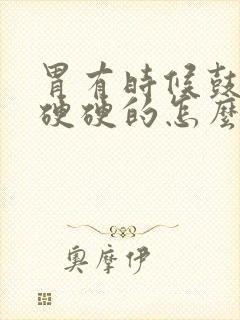 胃有時候鼓
硬硬的怎麼
奧摩伊